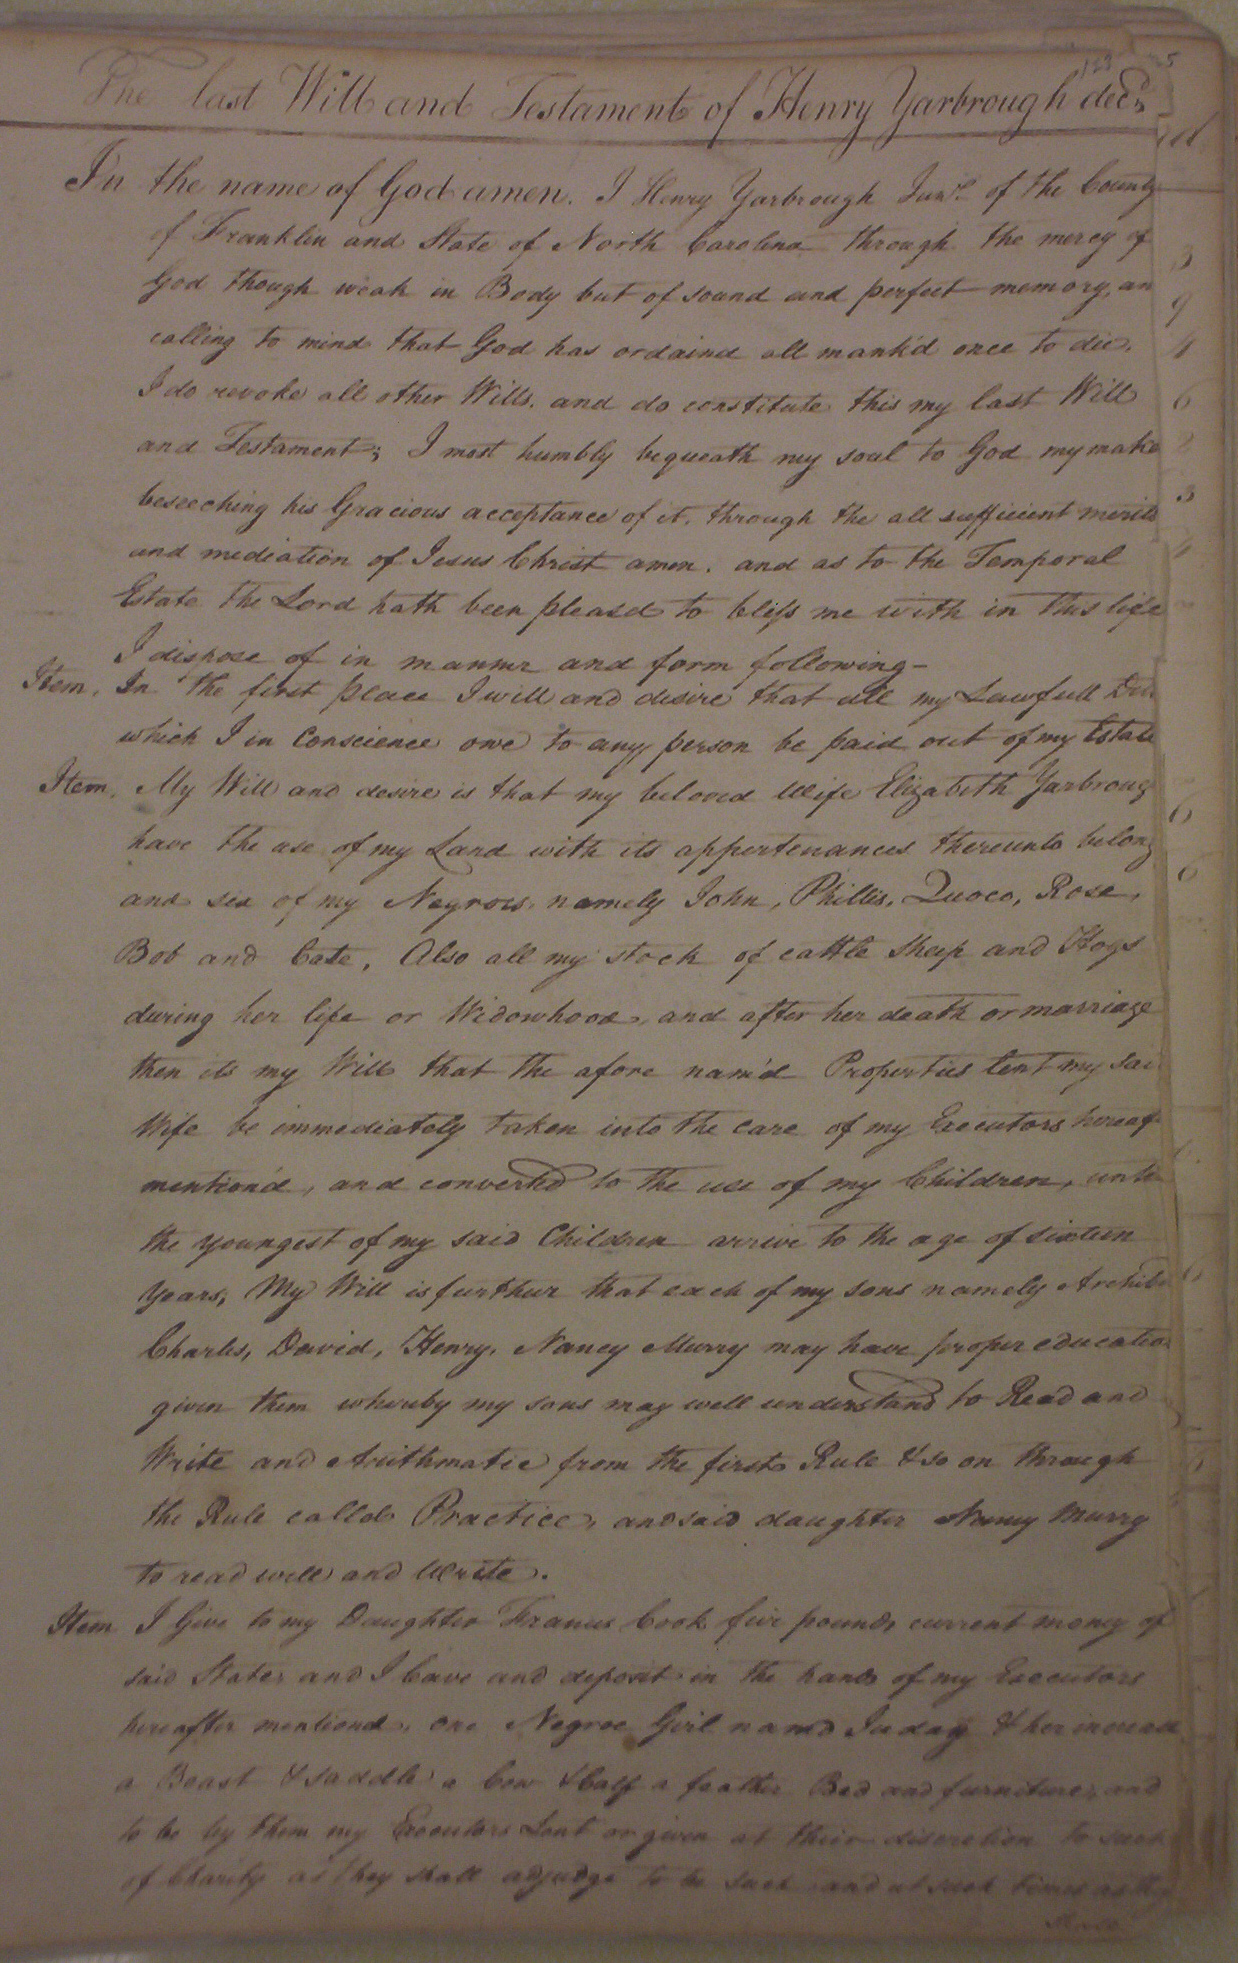 123
The last Will and Testament of Henry Yarbrough decd.
In the name of God amen. I Henry Yarbrough Junr. of the County
of Franklin and State of North Carolina through the mercy of
God though weak in Body but of sound and perfect memory, an
calling to mind that God has ordaind all mank'd once to die,
I do revoke all other Wills, and do constitute this my last Will
and Testament; I most humbly bequeath my soul to God my make
beseeching his Gracious acceptance of it, through the all sufficient merits
and mediation of Jesus Christ amen. and as to the Temporal
Estate the Lord hath been pleasd to bless me with in this life
I dispose of in manner and form following -
Item. In the first place I will and desire that all my Lawfull
which I in Conscience owe to any person be paid out of my Estate
Item. My Will and desire is that my beloved Wife Elizabeth Yarbroug
have the use of my Land with its appertenances thereunto belong
and six of my Negroes, namely John, Phillis, Quoco, Rose,
Bob and Cate, Also all my stock of cattle sheep and Hogs
during her life or Widowhood, and after her death or marriage
then its my Will that the afore nam'd Properties lent my sai
Wife be immediately taken into the care of my Executors hereaf
mention'd, and converted to the use of my Children, unti
the youngest of my said Children arrive to the age of sixteen
years; My Will is furthur that each of my sons namely Archiba
Charles, David, Henry, Nancy Murry may have proper educatio
given them whereby my sons may well understand to Read and
Write and Arithmatic from the first Rule & so on through
the Rule calld Practice, and said daughter Nancy Murry
to read well and Write.
Item I Give to my Daughter Frances Cook five pounds current money of
said State, and I leave and deposit in the hands of my Executors
hereafter mentiond, one Negroe Girl namd Juday & her increase
a Beast & saddle a Cow & Calf a feather Bed and furniture, and
to be by them my Executors Lent or given at their discretion to such
of Charity as they shall adjudge to be such and at such times as they